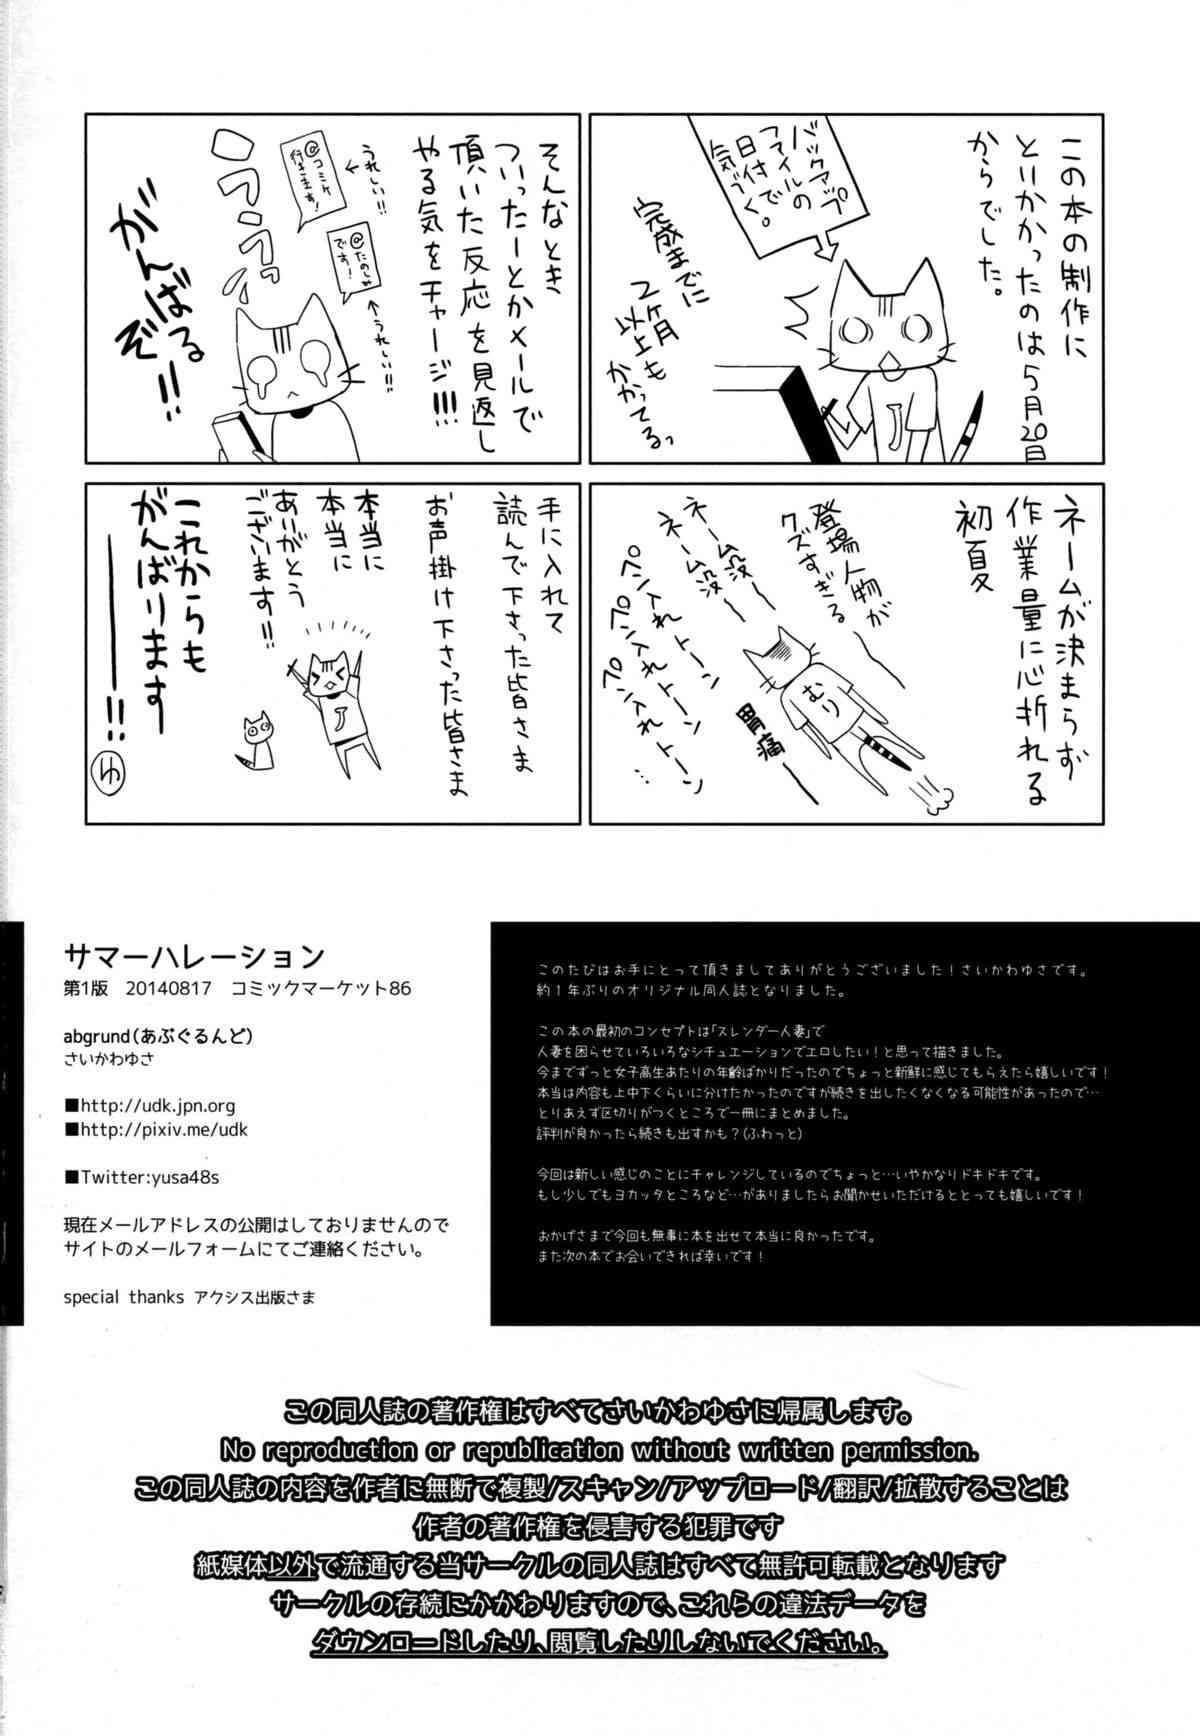 この本の制作に
とりかかったのは5月20日
からでした。
バックアップ
ファイルの
日付で
気づく。
完成までに
2ヶ月
以上も
かかってるっ
ネームが決まらず
作業量に心折れる
初夏
登場人物が
クズすぎるー
ネーム没ー
ネーム没ー
ペン入れトーン
ペンペン入れトーン
ペンペン入れトーン
むり
胃痛ー
そんなとき
ついったーとかメールで
頂いた反応を見返し
やる気をチャージ!!!
うれしい!!
@コミケ
行きます!
@たのしみ
です!
うれしい!!
がんばる
ぞ!!
手に入れて
読んで下さった皆さま
お声掛け下さった皆さま
本当に
本当に
ありがとう
ございます!!
これからも
がんばります
ーー!!
ゆ
サマーハレーション
第1版 20140817 コミックマーケット86
abgrund(あぶぐるんど)
さいかわゆさ
■http://udk.jpn.org
■http://pixiv.me/udk
■Twitter:yusa48s
現在メールアドレスの公開はしておりませんので
サイトのメールフォームにてご連絡ください。
special thanks アクシス出版さま
このたびはお手にとって頂きましてありがとうございました!さいかわゆさです。
約1年ぶりのオリジナル同人誌となりました。
この本の最初のコンセプトは「スレンダー人妻」で
人妻を困らせていろいろなシチュエーションでエロしたい!と思って描きました。
今までずっと女子高生あたりの年齢ばかりだったのでちょっと新鮮に感じてもらえたら嬉しいです!
本当は内容も上中下くらいに分けたかったのですが続きを出したくなくなる可能性があったので…
とりあえず区切りがつくところで一冊にまとめました。
評判が良かったら続きも出すかも?(ふわっと)
今回は新しい感じのことにチャレンジしているのでちょっと…いやかなりドキドキです。
もし少しでもヨカッタところなど…がありましたらお聞かせいただけるととっても嬉しいです!
おかげさまで今回も無事に本を出せて本当に良かったです。
また次の本でお会いできれば幸いです!
この同人誌の著作権はすべてさいかわゆさに帰属します。
No reproduction or republication without written permission.
この同人誌の内容を作者に無断で複製/スキャン/アップロード/翻訳/拡散することは
作者の著作権を侵害する犯罪です
紙媒体以外で流通する当サークルの同人誌はすべて無許可転載となります
サークルの存続にかかわりますので、これらの違法データを
ダウンロードしたり、閲覧したりしないでください。